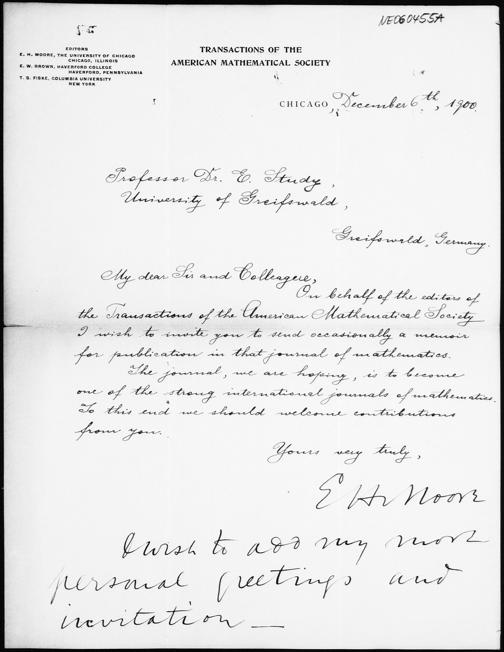 NE060455A
EDITORS
E. H. MOORE, THE UNIVERSITY OF CHICAGO
CHICAGO, ILLINOIS
E. W. BROWN, HAVERFORD COLLEGE
HAVERFORD, PENNSYLVANIA
T. S. FISKE, COLUMBIA UNIVERSITY
NEW YORK
TRANSACTIONS OF THE
AMERICAN MATHEMATICAL SOCIETY
CHICAGO, December 6th, 1900.
Professor Dr. E. Study,
University of Greifswald,
Greifswald, Germany.
My dear Sir and Colleague,
On behalf of the editors of
the Transactions of the American Mathematical Society
I wish to invite you to send occasionally a memoir
for publication in that journal of mathematics.
The journal, we are hoping, is to become
one of the strong international journals of mathematics.
To this end we should welcome contributions
from you.
Yours very truly,
E H Moore
I wish to add my most
personal greetings and
invitation —